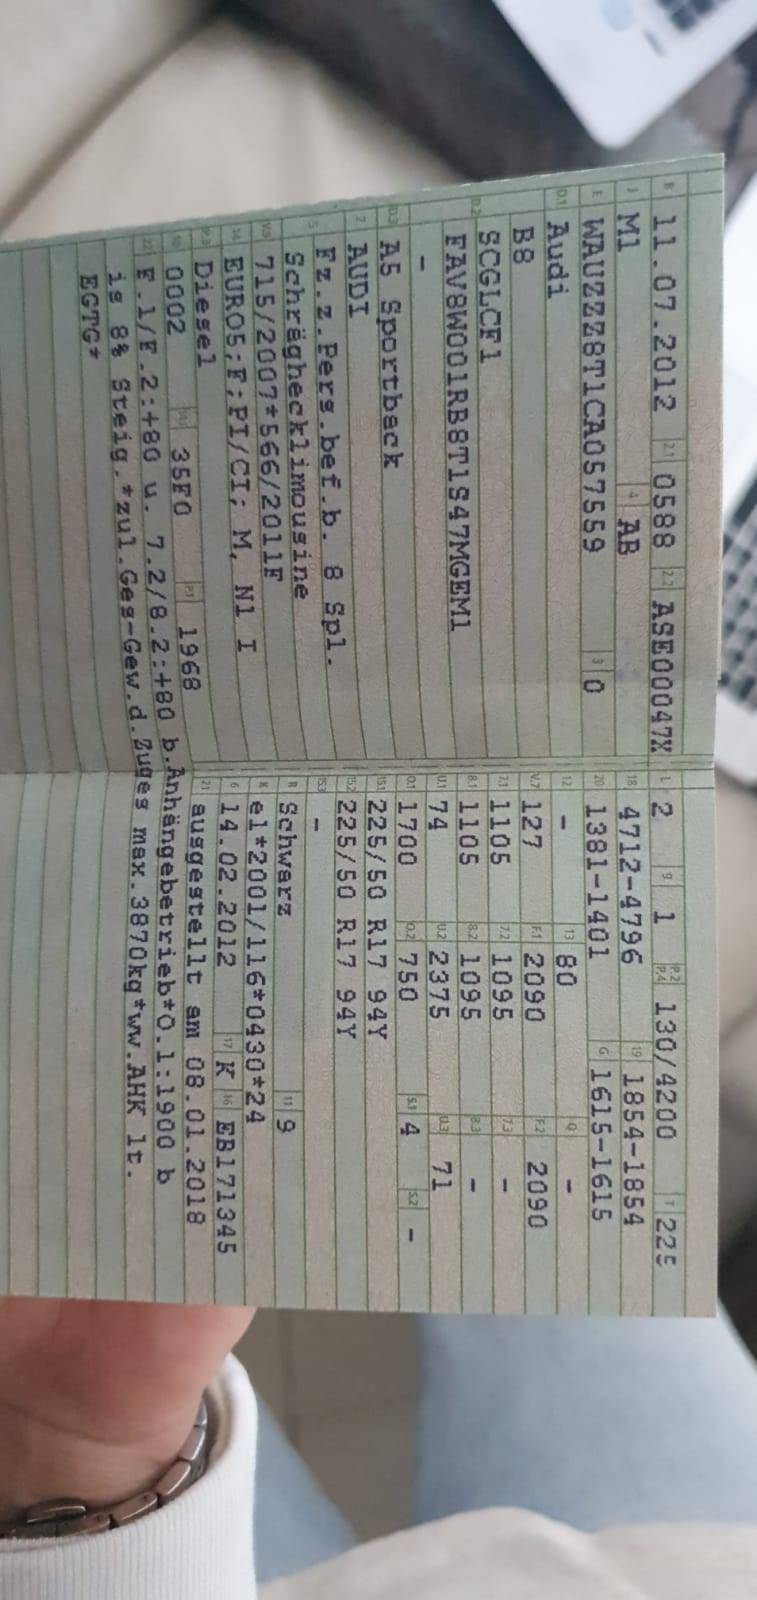 B 11.07.2012 2.1 0588 2.2 ASE00047X
J M1 4 AB
E WAUZZZ8T1CA057559 3 0
D.1 Audi
B8
D.2 SCGLCF1
FAV8W001RB8T1S47MGEM1
-
D.3 A5 Sportback
2 AUDI
5 Fz.z.Pers.bef.b. 8 Spl.
Schräghecklimousine
V.9 715/2007*566/2011F
14 EURO5;F;PI/CI; M, N1 I
P.3 Diesel
10 0002 14.1 35F0 P.1 1968
L 2 9 1 P.2 P.4 130/4200 T 225
18 4712-4796 19 1854-1854
20 1381-1401 G 1615-1615
12 - 13 80 Q -
V.7 127 F.1 2090 F.2 2090
7.1 1105 7.2 1095 7.3 -
8.1 1105 8.2 1095 8.3 -
U.1 74 U.2 2375 U.3 71
O.1 1700 O.2 750 S.1 4 S.2 -
15.1 225/50 R17 94Y
15.2 225/50 R17 94Y
15.3 -
R Schwarz 11 9
K e1*2001/116*0430*24
6 14.02.2012 17 K 16 EB171345
21 ausgestellt am 08.01.2018
22 F.1/F.2:+80 u. 7.2/8.2:+80 b.Anhängebetrieb*O.1:1900 b
is 8% Steig.*zul.Ges-Gew.d.Zuges max.3870kg*ww.AHK lt.
EGTG*